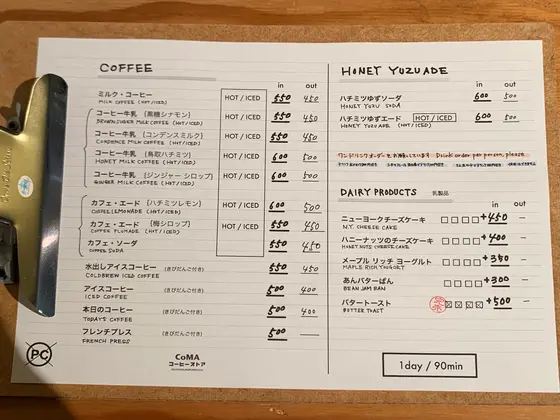 COFFEE
in out
ミルク・コーヒー HOT / ICED 550 450
MILK COFFEE (HOT/ICED)
コーヒー牛乳 [黒糖シナモン] HOT / ICED 550 450
BROWNSUGER MILK COFFEE (HOT/ICED)
コーヒー牛乳 [コンデンスミルク] HOT / ICED 550 450
CONDENCE MILK COFFEE (HOT/ICED)
コーヒー牛乳 [鳥取ハチミツ] HOT / ICED 600 500
HONEY MILK COFFEE (HOT/ICED)
コーヒー牛乳 [ジンジャー シロップ] HOT / ICED 600 500
GINGER MILK COFFEE (HOT/ICED)
カフェ・エード [ハチミツレモン] HOT / ICED 600 500
COFFEE LEMONADE (HOT/ICED)
カフェ・エード [梅シロップ] HOT / ICED 550 450
COFFEE PLUMADE (HOT/ICED)
カフェ・ソーダ 550 450
COFFEE SODA
水出しアイスコーヒー (きびだんご付き) 550 450
COLDBREW ICED COFFEE
アイスコーヒー (きびだんご付き) 500 400
ICED COFFEE
本日のコーヒー (きびだんご付き) 500 400
TODAYS COFFEE
フレンチプレス (きびだんご付き) 500 —
FRENCH PRESS
PC
CoMA
コーヒーストア
HONEY YUZUADE
in out
ハチミツゆずソーダ 600 500
HONEY YUZU SODA
ハチミツゆずエード HOT / ICED 600 500
HONEY YUZU ADE (HOT/ICED)
ワンドリンクオーダーをお願いしています! Drink order per person, please.
DAIRY PRODUCTS 乳製品
in out
ニューヨークチーズケーキ □□□□ +450 —
N.Y. CHEESE CAKE
ハニーナッツのチーズケーキ □□□□ +400 —
HONEY NUTS CHEESE CAKE
メープル リッチ ヨーグルト □□□□ +350 —
MAPLE RICH YOGURT
あんバターぱん □□□□ +300 —
BEAN JAM BAN
バタートースト +500 —
BUTTER TOAST
1day / 90min